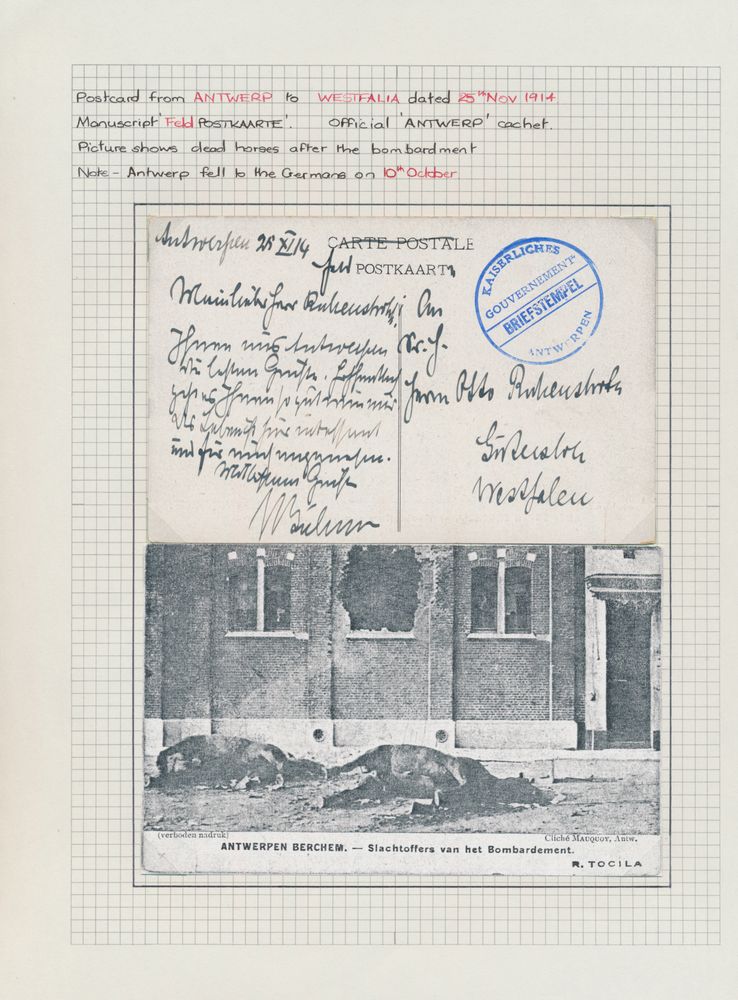 Postcard from ANTWERP to WESTFALIA dated 25th Nov 1914
Manuscript 'Feld POSTKAARTE'. Official 'ANTWERP' cachet.
Picture shows dead horses after the bombardment
Note - Antwerp fell to the Germans on 10th October
Antwerpen 25 XI 14
CARTE POSTALE
feld POSTKAART
KAISERLICHES
GOUVERNEMENT
BRIEFSTEMPEL
ANTWERPEN
Mein lieber Herr
An
Ihnen aus Antwerpen
die besten Grüße. Hoffentlich
geht es Ihnen so gut wie mir
Herrn Otto
Das Leben ist hier interessant
und für mich angenehm.
Gütersloh
Westfalen
(verboden nadruk)
Cliché MAUQUOY, Antw.
ANTWERPEN BERCHEM. — Slachtoffers van het Bombardement.
R. TOCILA